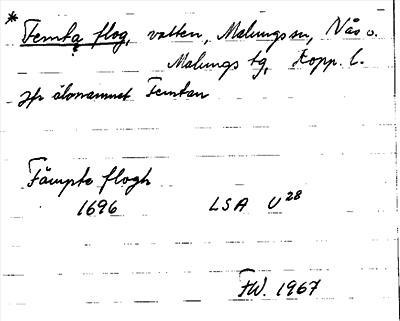 * Femtạ flog, vatten, Malungs sn, Nås o.
Malungs tg, Kopp. l.
Jfr älvnamnet Femtan
Fämpte flogh
1696 LSA U28
FW. 1967